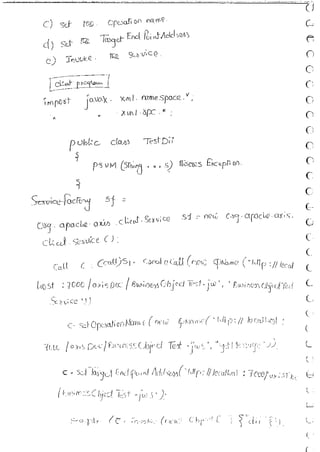 c) set the operation name.
d) set the Target End Point Address
e) Invoke the service.
client program
import javax. xml. namespace.*;
" xml. rpc. *;
public class TestDii
{
psvm (String ... s) throws Exception.
{
ServiceFactory sf =
org. apache axis. client. Service sf = new org. apache. axis.
client service ();
Call c = (call) sf. createCall (new QName ("http://local
host : 7000 / axis Doc / BusinessObject Test. jw", "BusinessObjectTest
Service"))
c. setOperationName (new QName ("http:// localhost :
7000 /axis Doc/BusinessObject Test .jws",
c. setTargetEndpointAddress("http://localhost : 7000/axis
/BusinessObject Test .jws");
(c. invoke (new Object [] {